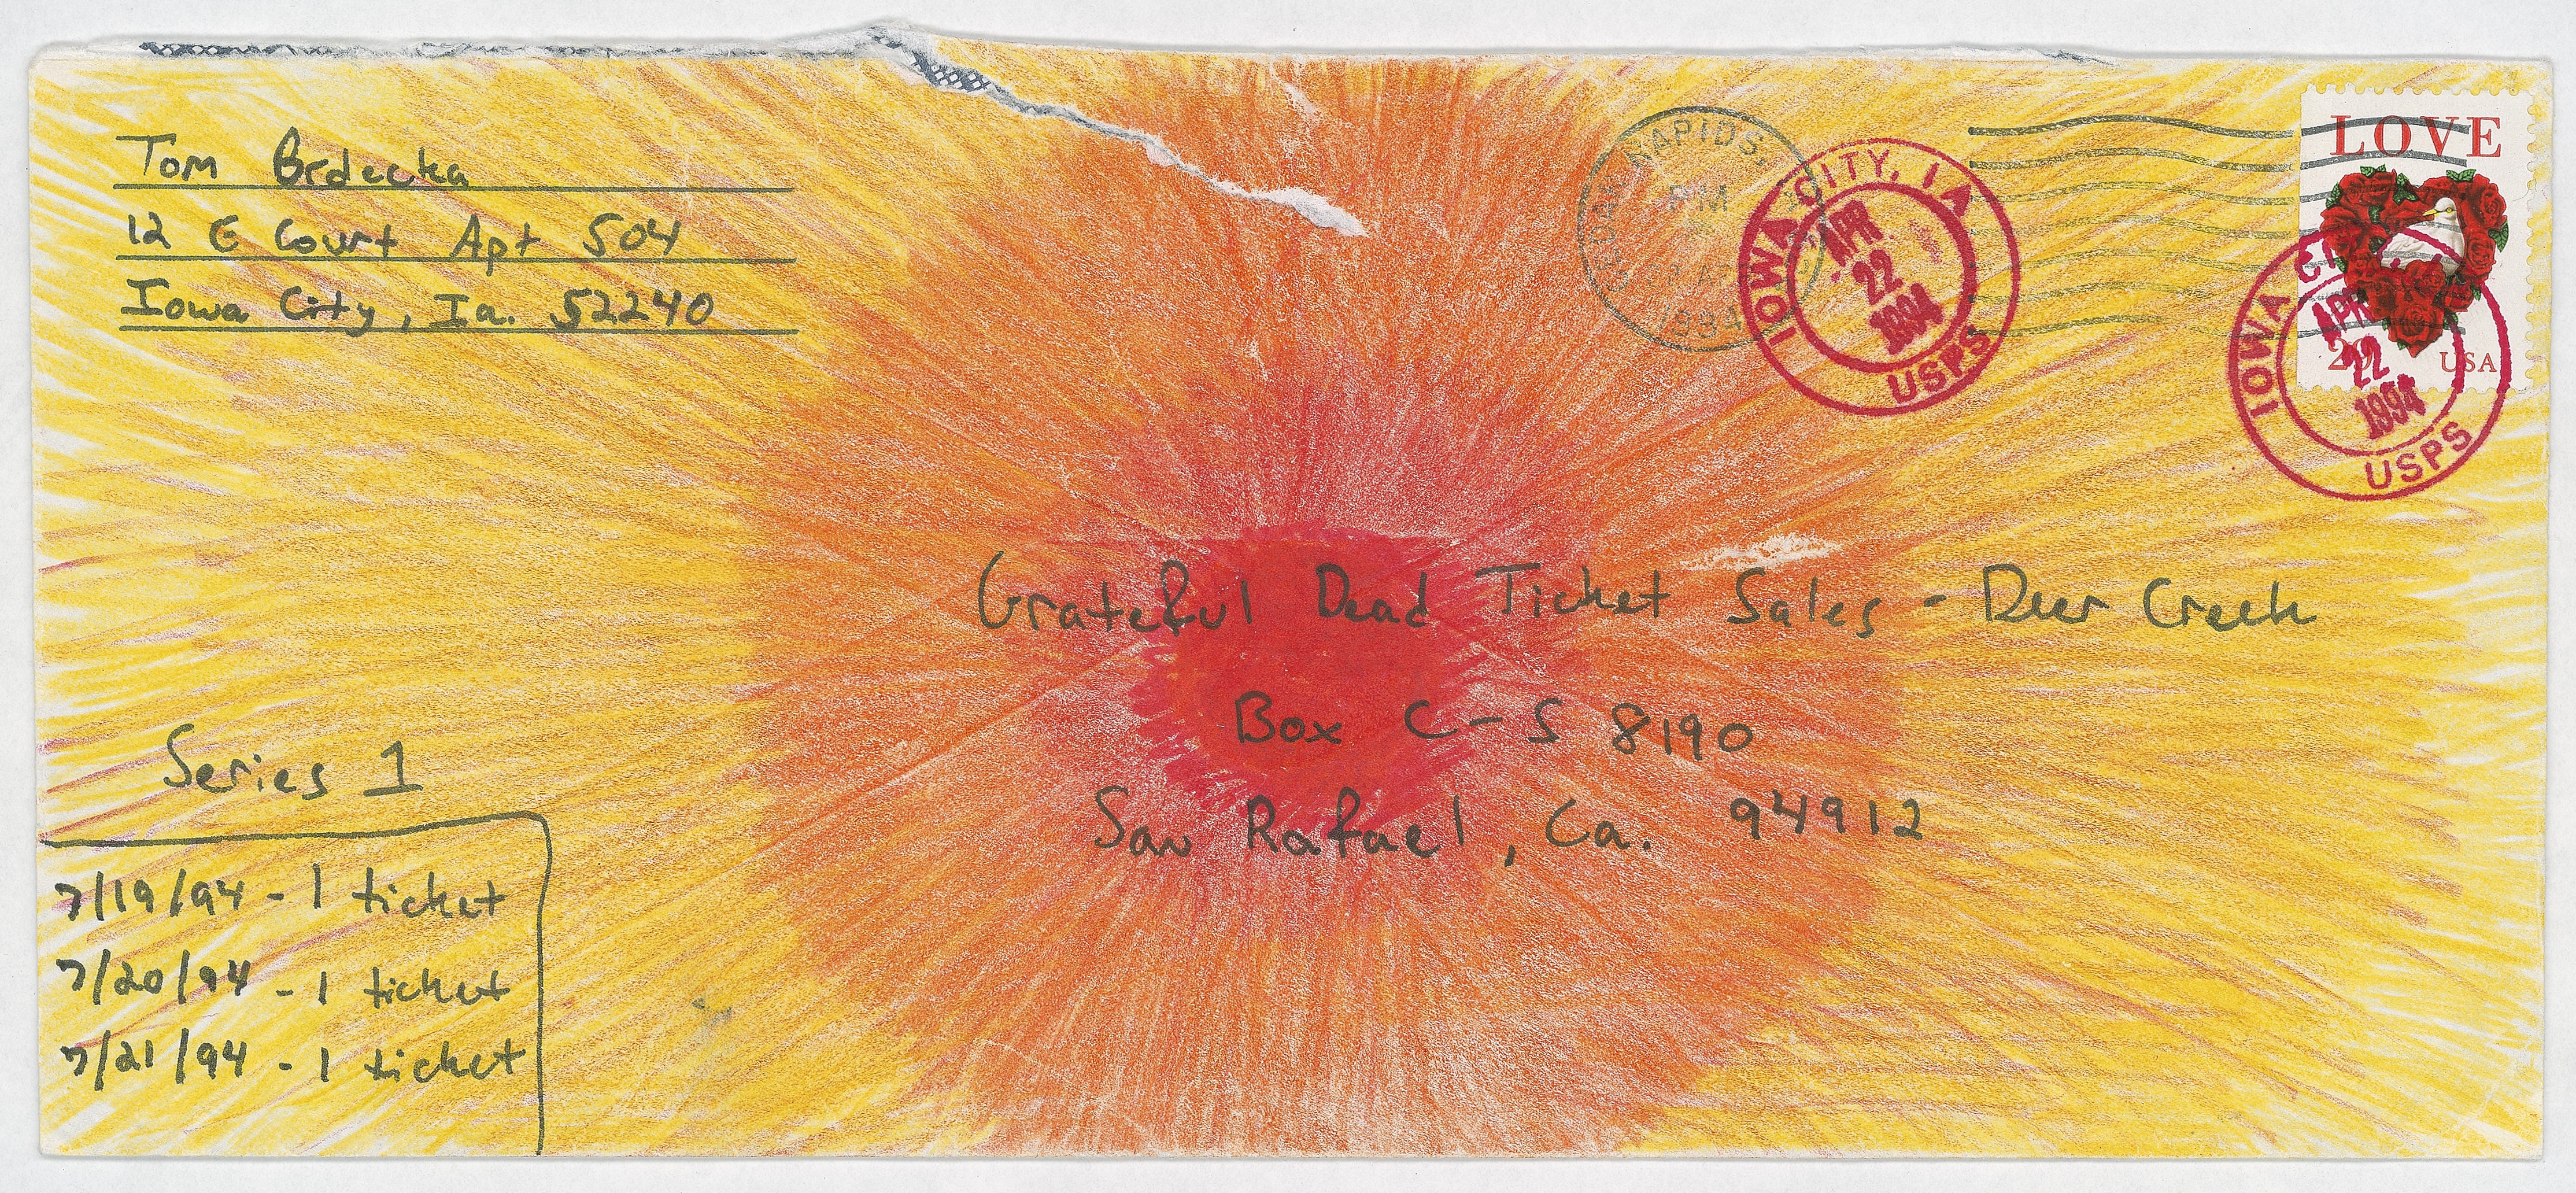 Tom Brdecka
12 E Court Apt 504
Iowa City, Ia. 52240
RAPIDS,
PM
1994
IOWA CITY, IA
APR
22
1994
USPS
LOVE
USA
IOWA
APR
22
1994
USPS
Grateful Dead Ticket Sales - Deer Creek
Box C-S 8190
San Rafael, Ca. 94912
Series 1
7/19/94 - 1 ticket
7/20/94 - 1 ticket
7/21/94 - 1 ticket